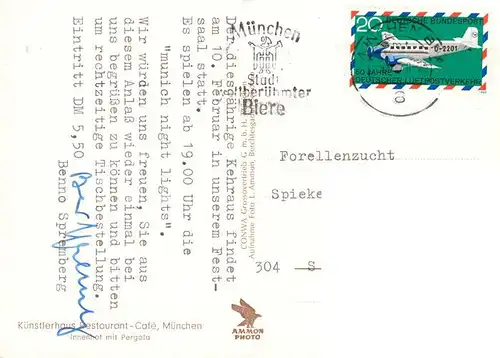 Der diesjährige Kehraus findet
am 10. Februar in unserem Fest-
saal statt.
Es spielen ab 19.00 Uhr die
"munich night lights".
Wir würden uns freuen, Sie aus
diesem Anlaß wieder einmal bei
uns begrüßen zu können und bitten
um rechtzeitige Tischbestellung.
Eintritt DM 5,50
Benno Spremberg
Künstlerhaus Restaurant-Café, München
Innenhof mit Pergola
AMMON
PHOTO
München
Stadt
weltberühmter
Biere
20
DEUTSCHE BUNDESPOST
D-2201
50 JAHRE
DEUTSCHER LUFTPOSTVERKEHR
Forellenzucht
Spieke
304 S